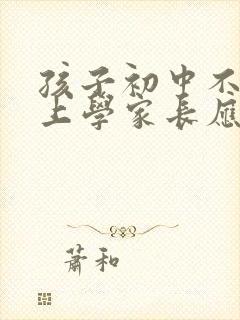 孩子初中不
上學家長應
蕭和